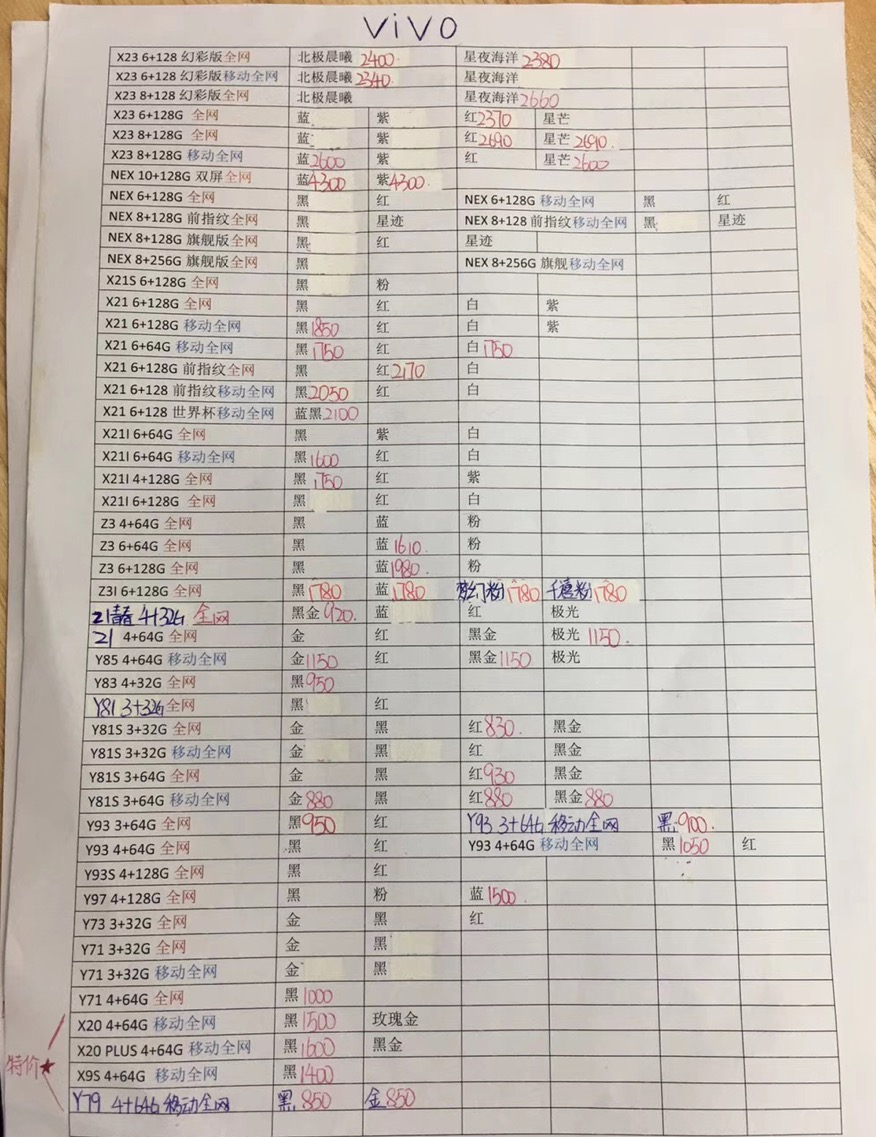 vivo
X23 6+128 幻彩版全网 北极晨曦 2400 星夜海洋 2380
X23 6+128 幻彩版移动全网 北极晨曦 2340 星夜海洋
X23 8+128 幻彩版全网 北极晨曦 星夜海洋 2660
X23 6+128G 全网 蓝 紫 红 2370 星芒
X23 8+128G 全网 蓝 紫 红 2690 星芒 2690
X23 8+128G 移动全网 蓝 2600 紫 红 星芒 2600
NEX 10+128G 双屏全网 蓝 4300 紫 4300
NEX 6+128G 全网 黑 红 NEX 6+128G 移动全网 黑 红
NEX 8+128G 前指纹全网 黑 星迹 NEX 8+128 前指纹移动全网 黑 星迹
NEX 8+128G 旗舰版全网 黑 红 星迹
NEX 8+256G 旗舰版全网 黑 NEX 8+256G 旗舰移动全网
X21S 6+128G 全网 黑 粉
X21 6+128G 全网 黑 红 白 紫
X21 6+128G 移动全网 黑 1850 红 白 紫
X21 6+64G 移动全网 黑 1750 红 白 1750
X21 6+128G 前指纹全网 黑 红 2170 白
X21 6+128 前指纹移动全网 黑 2050 红 白
X21 6+128 世界杯移动全网 蓝黑 2100
X21I 6+64G 全网 黑 紫 白
X21I 6+64G 移动全网 黑 1600 红 白
X21I 4+128G 全网 黑 1750 红 紫
X21I 6+128G 全网 黑 红 白
Z3 4+64G 全网 黑 蓝 粉
Z3 6+64G 全网 黑 蓝 1610 粉
Z3 6+128G 全网 黑 蓝 1980 粉
Z3I 6+128G 全网 黑 1780 蓝 1780 梦幻粉 1780 千禧粉 1780
Z1青春 4+32G 全网 黑金 920 蓝 红 极光
Z1 4+64G 全网 金 红 黑金 极光 1150
Y85 4+64G 移动全网 金 1150 红 黑金 1150 极光
Y83 4+32G 全网 黑 950
Y81 3+32G 全网 黑 红
Y81S 3+32G 全网 金 黑 红 830 黑金
Y81S 3+32G 移动全网 金 黑 红 黑金
Y81S 3+64G 全网 金 黑 红 930 黑金
Y81S 3+64G 移动全网 金 880 黑 红 880 黑金 880
Y93 3+64G 全网 黑 950 红 Y93 3+64G 移动全网 黑 900
Y93 4+64G 全网 黑 红 Y93 4+64G 移动全网 黑 1050 红
Y93S 4+128G 全网 黑 红
Y97 4+128G 全网 黑 粉 蓝 1500
Y73 3+32G 全网 金 黑 红
Y71 3+32G 全网 金 黑
Y71 3+32G 移动全网 金 黑
Y71 4+64G 全网 黑 1000
X20 4+64G 移动全网 黑 1500 玫瑰金
X20 PLUS 4+64G 移动全网 黑 1600 黑金
特价★ X9S 4+64G 移动全网 黑 1400
Y79 4+64G 移动全网 黑 850 金 850